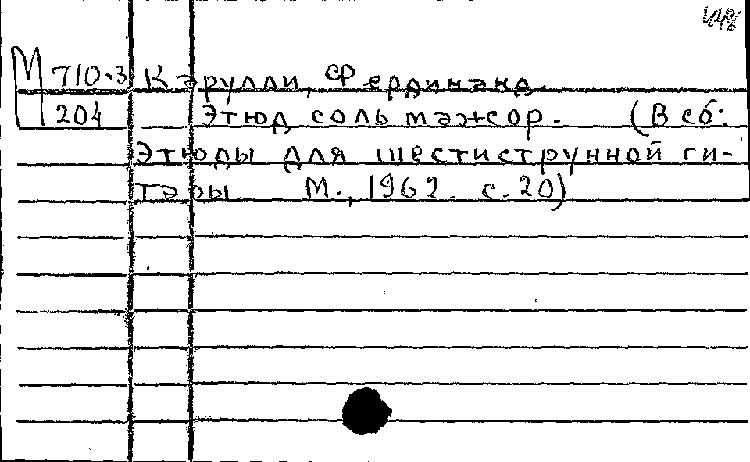 М 710-3 Карулли, Фердинанд.
204 Этюд соль мажор. (В сб:
Этюды для шестиструнной ги-
тары М., 1962. с. 20)